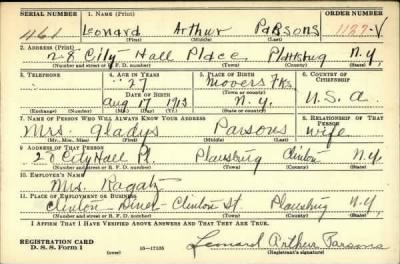 SERIAL NUMBER 1. NAME (Print) ORDER NUMBER
461 Leonard Arthur Parsons 1187-V
(First) (Middle) (Last)
2. ADDRESS (Print)
28 City Hall Place Plattsburg N.Y.
(Number and street or R. F. D. number) (Town) (County) (State)
3. TELEPHONE 4. AGE IN YEARS 5. PLACE OF BIRTH 6. COUNTRY OF CITIZENSHIP
27 Movers Fks
DATE OF BIRTH (Town or county)
Aug 17 1913 N.Y. U.S.A.
(Exchange) (Number) (Mo.) (Day) (Yr.) (State or country)
7. NAME OF PERSON WHO WILL ALWAYS KNOW YOUR ADDRESS 8. RELATIONSHIP OF THAT PERSON
Mrs. Gladys Parsons wife
(Mr., Mrs., Miss) (First) (Middle) (Last)
9. ADDRESS OF THAT PERSON
28 City Hall Pl. Plausburg Clinton N.Y.
(Number and street or R. F. D. number) (Town) (County) (State)
10. EMPLOYER'S NAME
Mrs. Ragatz
11. PLACE OF EMPLOYMENT OR BUSINESS
Clinton Diner - Clinton St Plausburg N.Y.
(Number and street or R. F. D. number) (Town) (County) (State)
I AFFIRM THAT I HAVE VERIFIED ABOVE ANSWERS AND THAT THEY ARE TRUE.
REGISTRATION CARD
D. S. S. Form 1 16-17105 Leonard Arthur Parsons
(Registrant's signature)